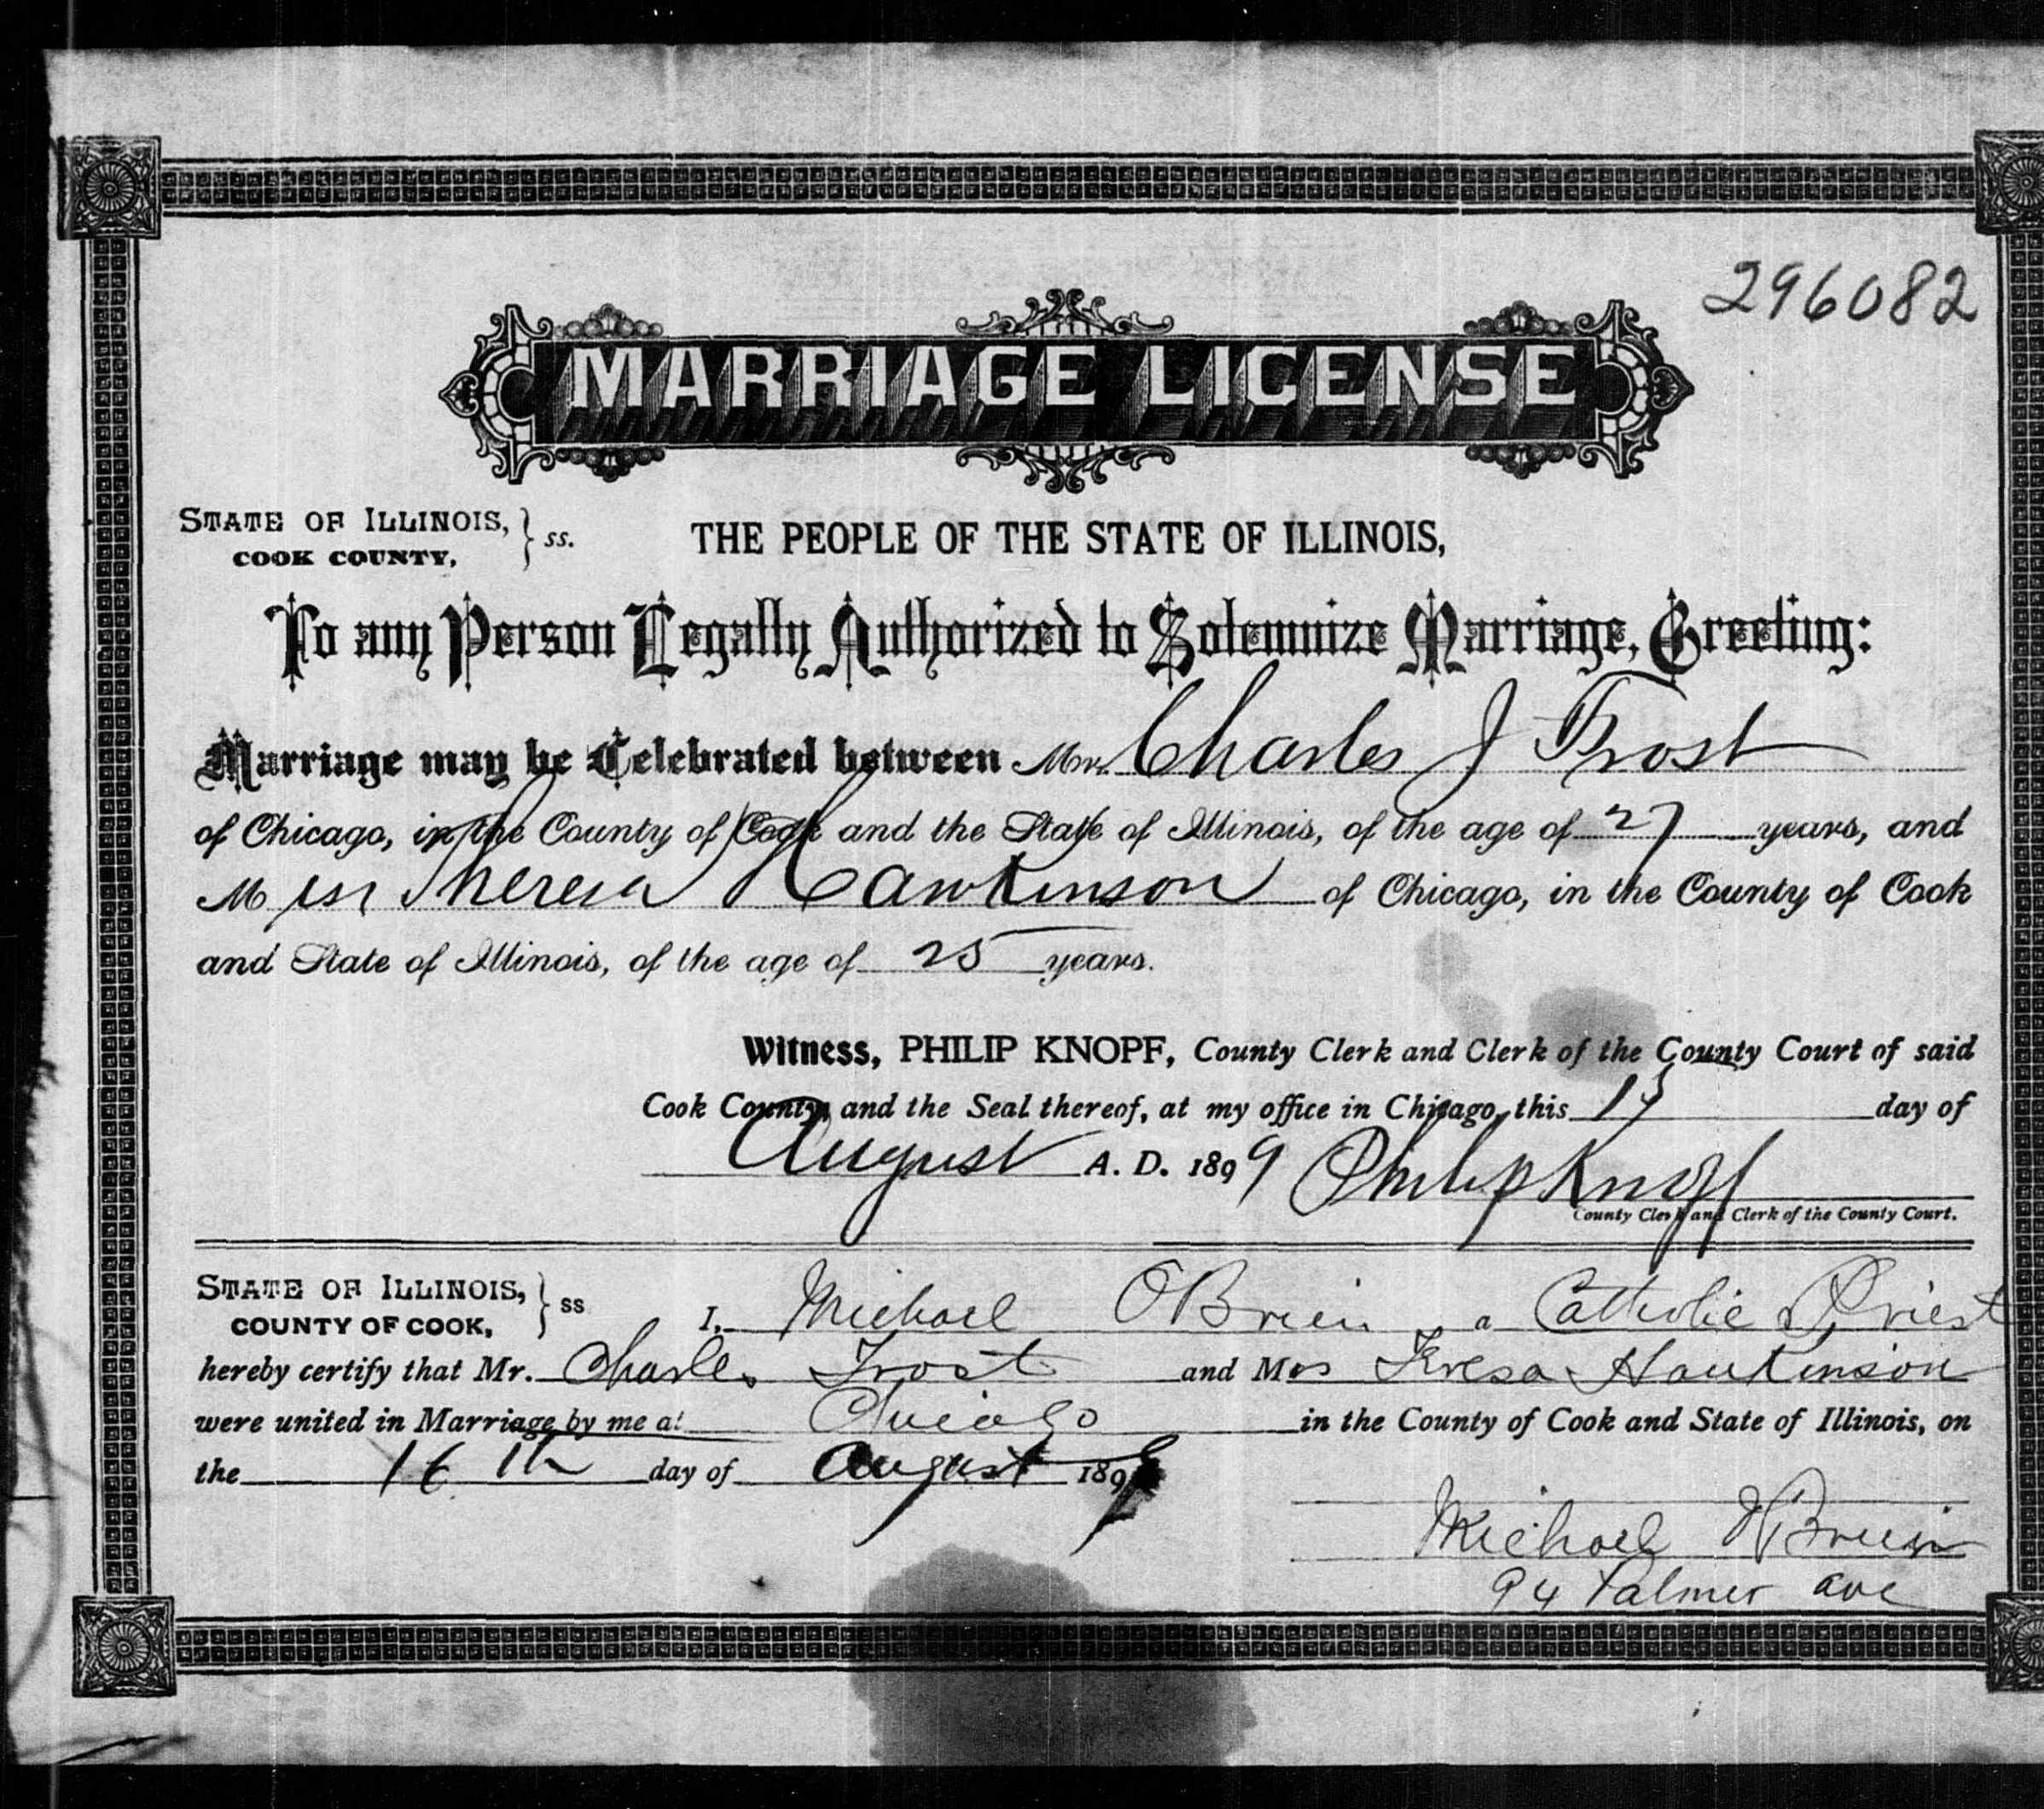 296082
MARRIAGE LICENSE
STATE OF ILLINOIS, } ss. THE PEOPLE OF THE STATE OF ILLINOIS,
COOK COUNTY,
To any Person Legally Authorized to Solemnize Marriage, Greeting:
Marriage may be Celebrated between Mr. Charles J Frost
of Chicago, in the County of Cook and the State of Illinois, of the age of 27 years, and
Miss Theresa Hawkinson of Chicago, in the County of Cook
and State of Illinois, of the age of 25 years.
Witness, PHILIP KNOPF, County Clerk and Clerk of the County Court of said
Cook County, and the Seal thereof, at my office in Chicago, this day of
August A. D. 1899 Philip Knopf
County Clerk and Clerk of the County Court.
STATE OF ILLINOIS, } ss I, Michael O'Brien a Catholic Priest
COUNTY OF COOK,
hereby certify that Mr. Charles Frost and M Teresa Hawkinson
were united in Marriage by me at Chicago in the County of Cook and State of Illinois, on
the 16th day of August 1899
Michael O'Brien
94 Palmer ave